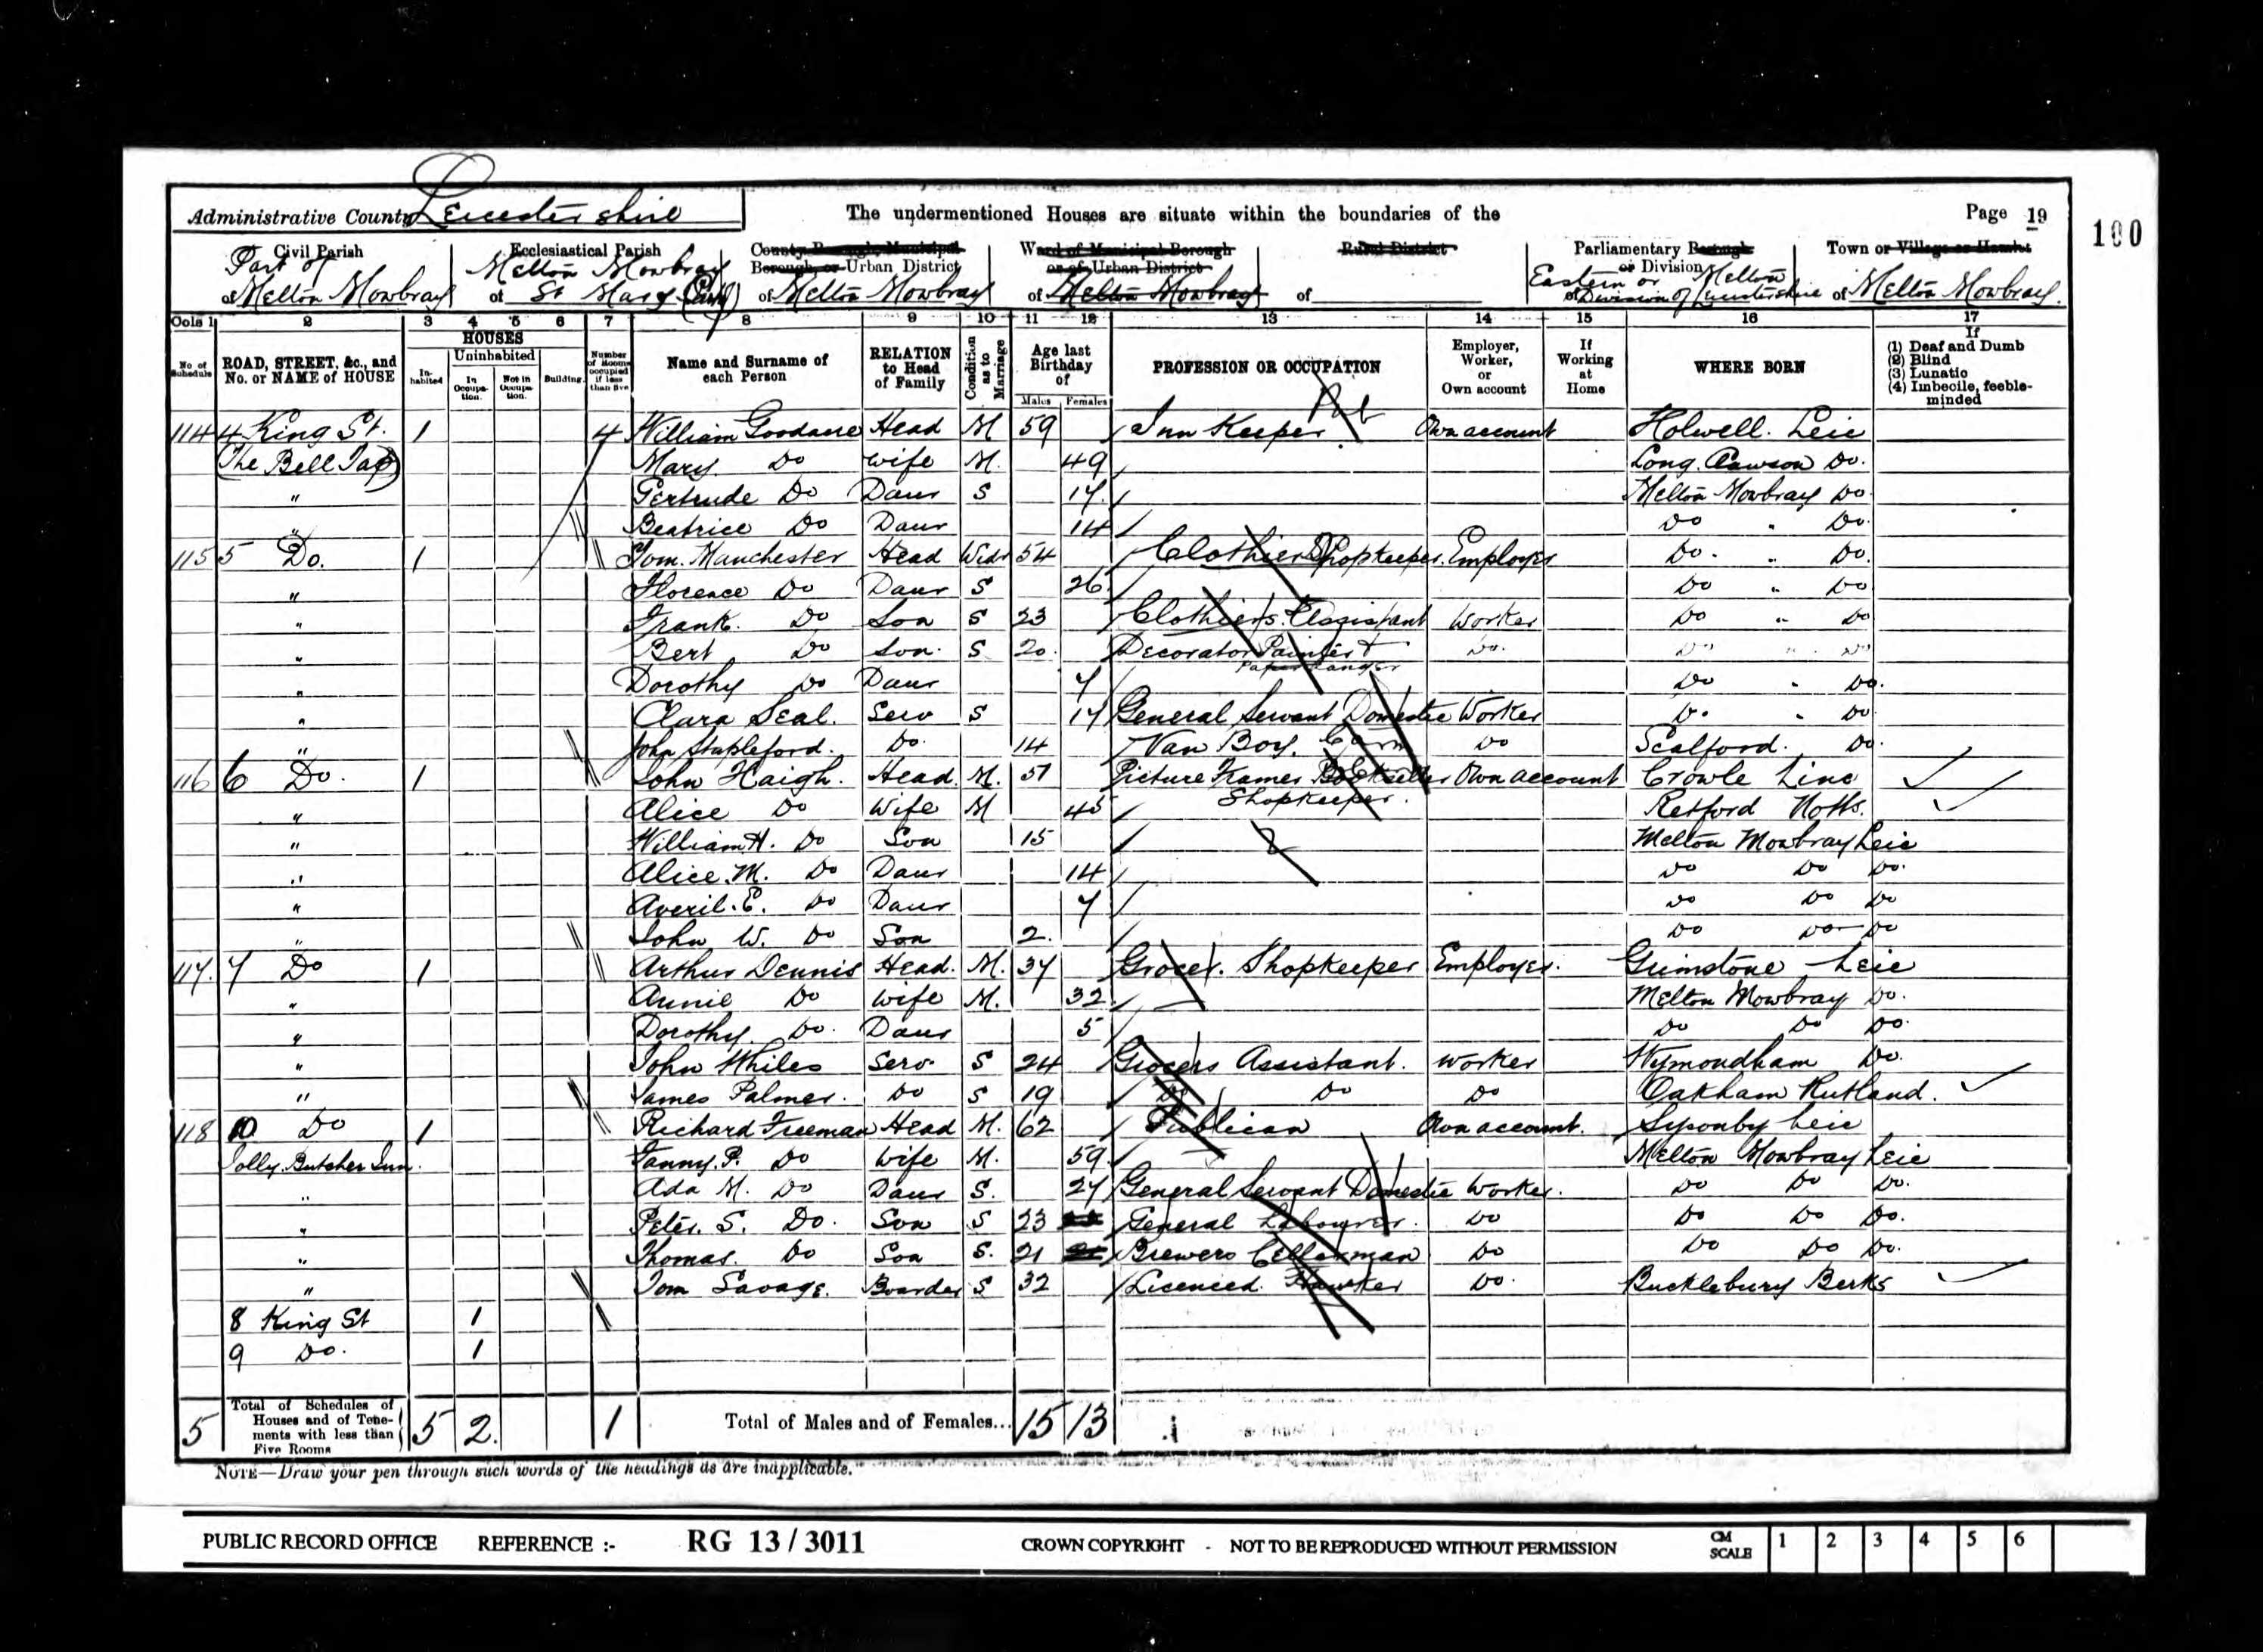 Administrative County Leicestershire The undermentioned Houses are situate within the boundaries of the Page 19
190
Civil Parish Ecclesiastical Parish County Borough, Municipal Borough, or Urban District Ward of Municipal Borough or of Urban District Rural District Parliamentary Borough or Division Town or Village or Hamlet
Part of Melton Mowbray of Melton Mowbray St Mary (Part) of Melton Mowbray of Melton Mowbray of Eastern or Melton Division of Leicestershire of Melton Mowbray.
Cols 1 2 3 4 5 6 7 8 9 10 11 12 13 14 15 16 17
No of Schedule ROAD, STREET, &c., and No. or NAME of HOUSE HOUSES Inhabited Uninhabited In Occupation. Not in Occupation. Building. Number of Rooms occupied if less than five Name and Surname of each Person RELATION to Head of Family Condition as to Marriage Age last Birthday of Males Females PROFESSION OR OCCUPATION Employer, Worker, or Own account If Working at Home WHERE BORN If (1) Deaf and Dumb (2) Blind (3) Lunatic (4) Imbecile, feeble-minded
114 4 King St. 1 4 William Goodacre Head M 59 Inn Keeper Own account Holwell. Leic
(The Bell Tap) Mary. Do Wife M. 49 Long Clawson Do.
" Gertrude Do Daur S 17 Melton Mowbray Do
" Beatrice Do Daur 14 Do " Do.
115 5 Do. 1 Tom. Manchester Head Widr 54 Clothier Shopkeeper. Employer Do. " Do.
" Florence Do Daur S 26 Do " Do
" Frank. Do Son S 23 Clothiers Assistant Worker Do " Do
" Bert Do Son. S 20. Decorator Painter & Paper Hanger Do. Do " Do
" Dorothy Do Daur 7 Do " Do.
" Clara Seal. Serv S 17 General Servant Domestic Worker Do " Do
" John Stapleford. Do. 14 Van Boy. Do Scalford. Do.
116 6 Do. 1 John Haigh. Head. M. 51 Picture Framer Bookseller Shopkeeper. Own account Crowle Linc
" Alice Do Wife M 45 Retford Notts.
" William H. Do Son 15 Melton Mowbray Leic
" Alice. M. Do Daur 14 Do Do Do.
" Averil. E. Do Daur 7 Do Do Do
" John W. Do Son 2. Do Do Do
117. 7 Do 1 Arthur Dennis Head. M. 37 Grocer. Shopkeeper Employer. Grimstone Leic
" Annie Do Wife M. 32 Melton Mowbray Do.
" Dorothy. Do. Daur 5 Do Do Do.
" John Whiles Serv S 24 Grocers Assistant. Worker Wymondham Do.
" James Palmer. Do S 19 Do Do Do Oakham Rutland.
118 10 Do 1 Richard Freeman Head M. 62 Publican Own account. Sysonby Leic
Jolly Butcher Inn. Fanny. P. Do Wife M. 59 Melton Mowbray Leic
" Ada M. Do Daur S. 27 General Servant Domestic Worker. Do Do Do.
" Peter. S. Do. Son S 23 General Labourer. Do Do Do Do.
" Thomas. Do Son S. 21 Brewers Cellarman Do Do Do Do.
" Tom Savage. Boarder S 32 Licenced Hawker Do. Bucklebury Berks
8 King St 1
9 Do. 1
5 Total of Schedules of Houses and of Tenements with less than Five Rooms 5 2. 1 Total of Males and of Females... 15 13
NOTE—Draw your pen through such words of the headings as are inapplicable.
PUBLIC RECORD OFFICE REFERENCE :- RG 13 / 3011 CROWN COPYRIGHT - NOT TO BE REPRODUCED WITHOUT PERMISSION CM SCALE 1 2 3 4 5 6